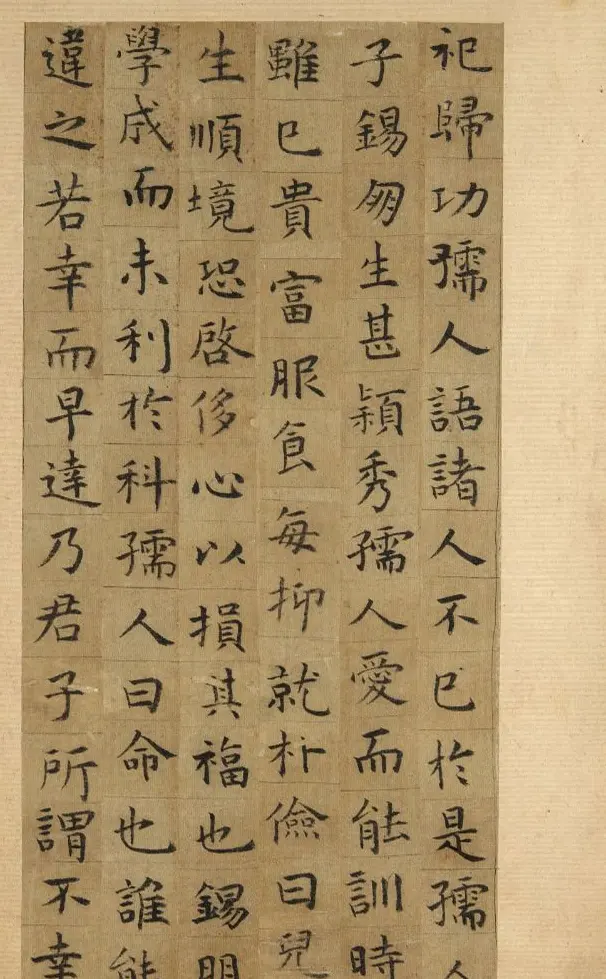 祀歸功孺人語諸人不已於是孺人
子錫匆生甚穎秀孺人愛而能訓時
雖已貴富服食每抑就朴儉曰兒
生順境恐啓侈心以損其福也錫明
學成而未利於科孺人曰命也誰能
違之若幸而早達乃君子所謂不幸